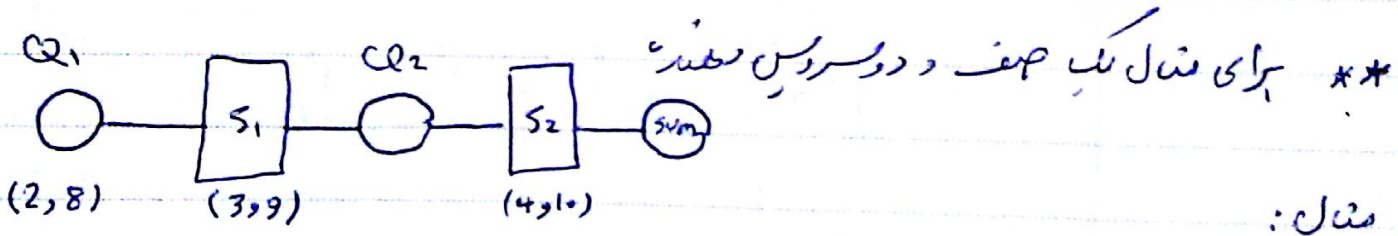 ** برای مثال یک صف و دو سرویس دهنده
CQ1 S1 CQ2 S2 sum
(2,8) (3,9) (4,10)
مثال: